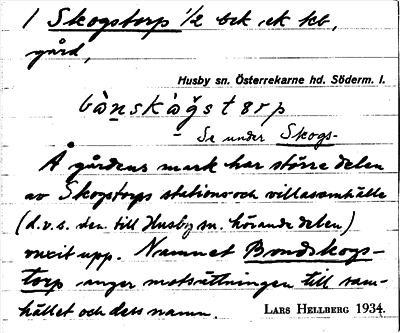 1 Skogstorp 1/2 bek, ek kb,
gård,
Husby sn. Österrekarne hd. Söderm. l.
Se under Skogs-
Å gårdens mark har större delen
av Skogstorps stations- och villasamhälle
(d.v.s. den till Husby sn. hörande delen)
vuxit upp. Namnet Bondskogs-
torp anger motsättningen till sam-
hället och dess namn. LARS HELLBERG 1934.